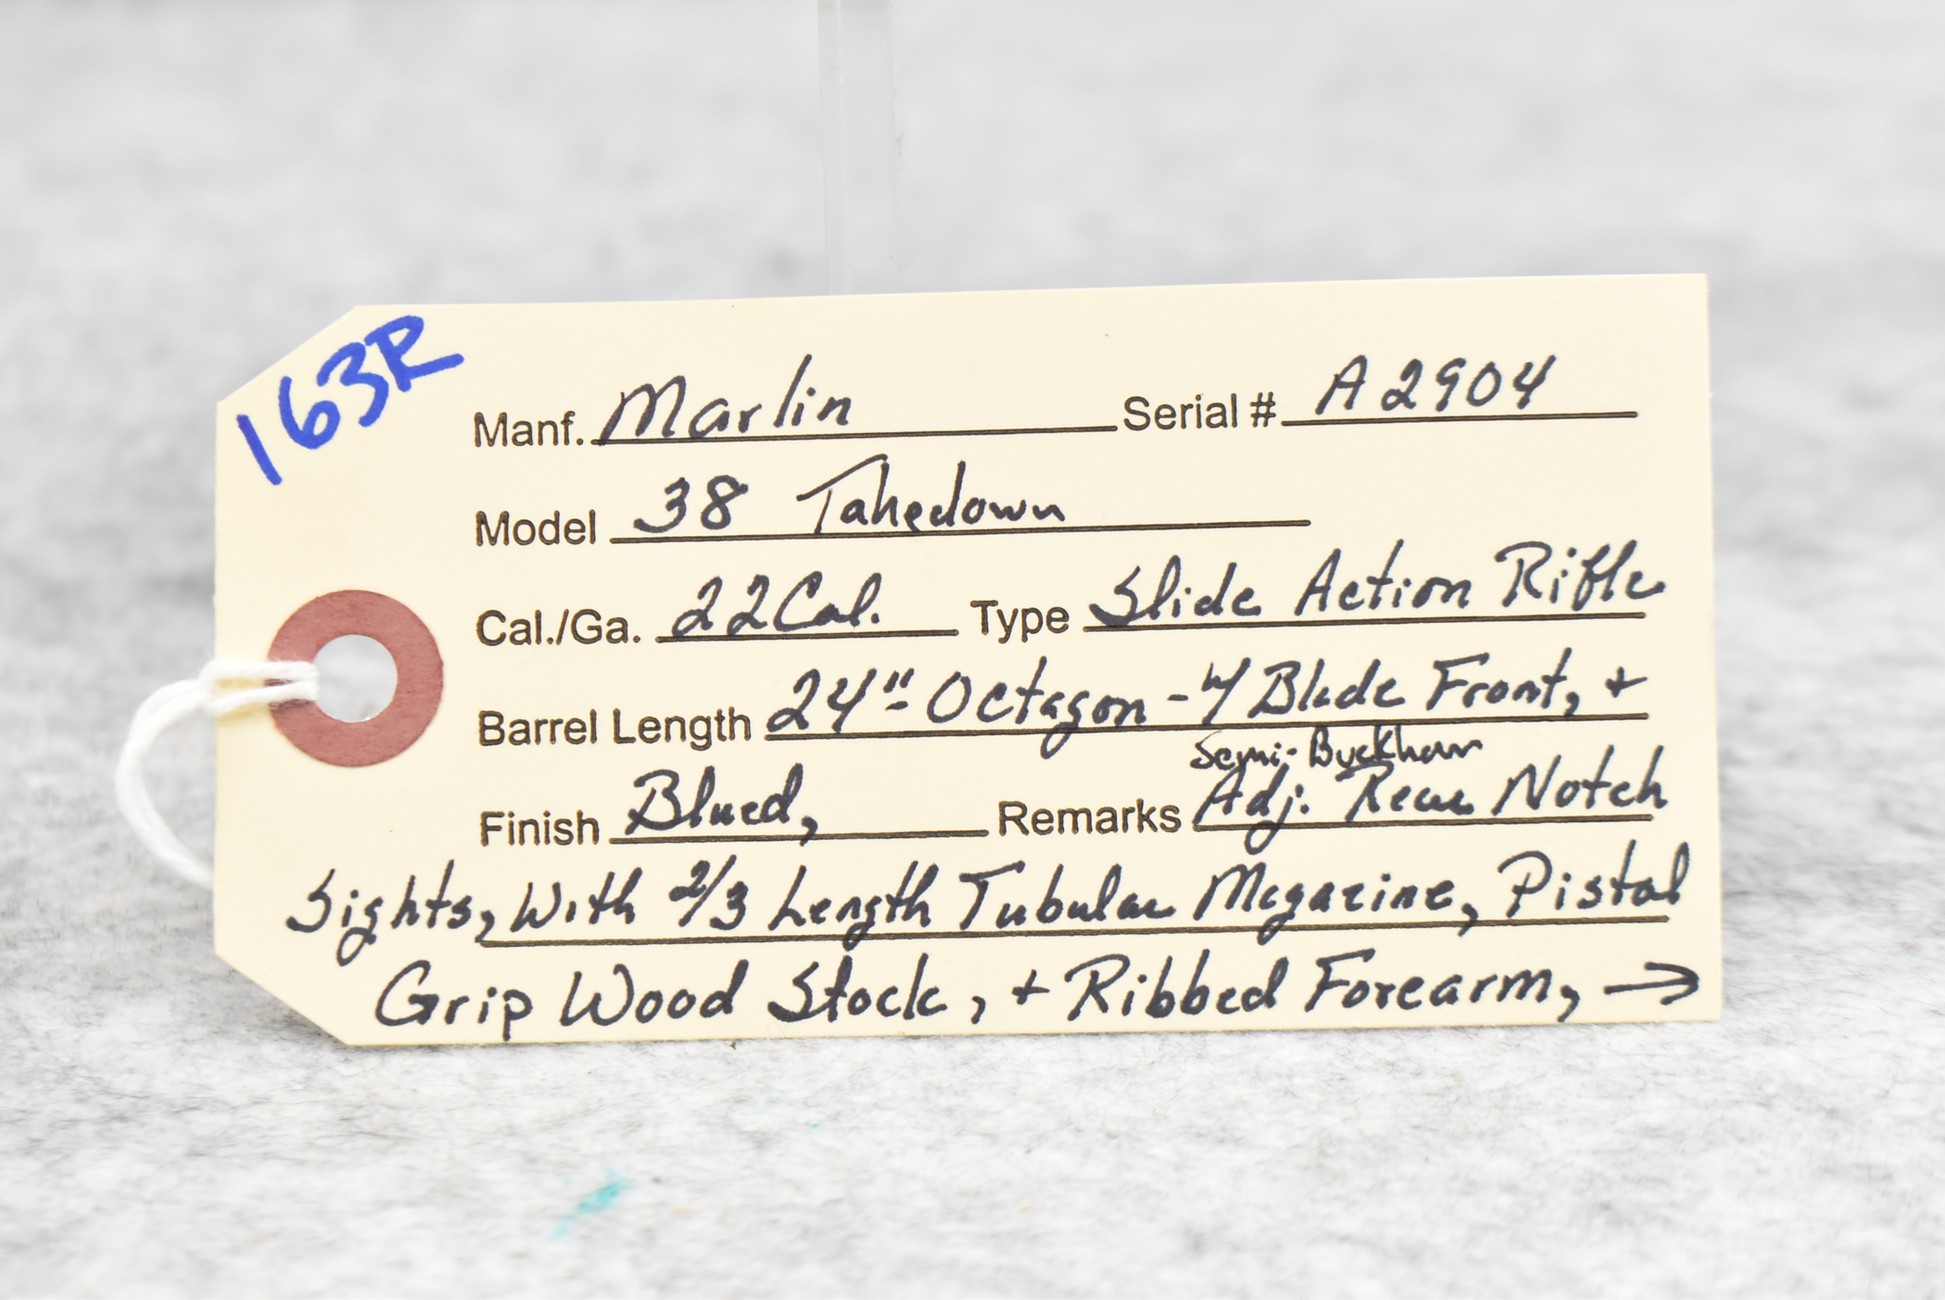 163R
Manf. Marlin Serial # A2904
Model 38 Takedown
Cal./Ga. 22 Cal. Type Slide Action Rifle
Barrel Length 24" Octagon - w/ Blade Front, +
Semi-Buckhorn
Finish Blued, Remarks Adj. Rear Notch
Sights, With 2/3 Length Tubular Magazine, Pistol
Grip Wood Stock, + Ribbed Forearm, →